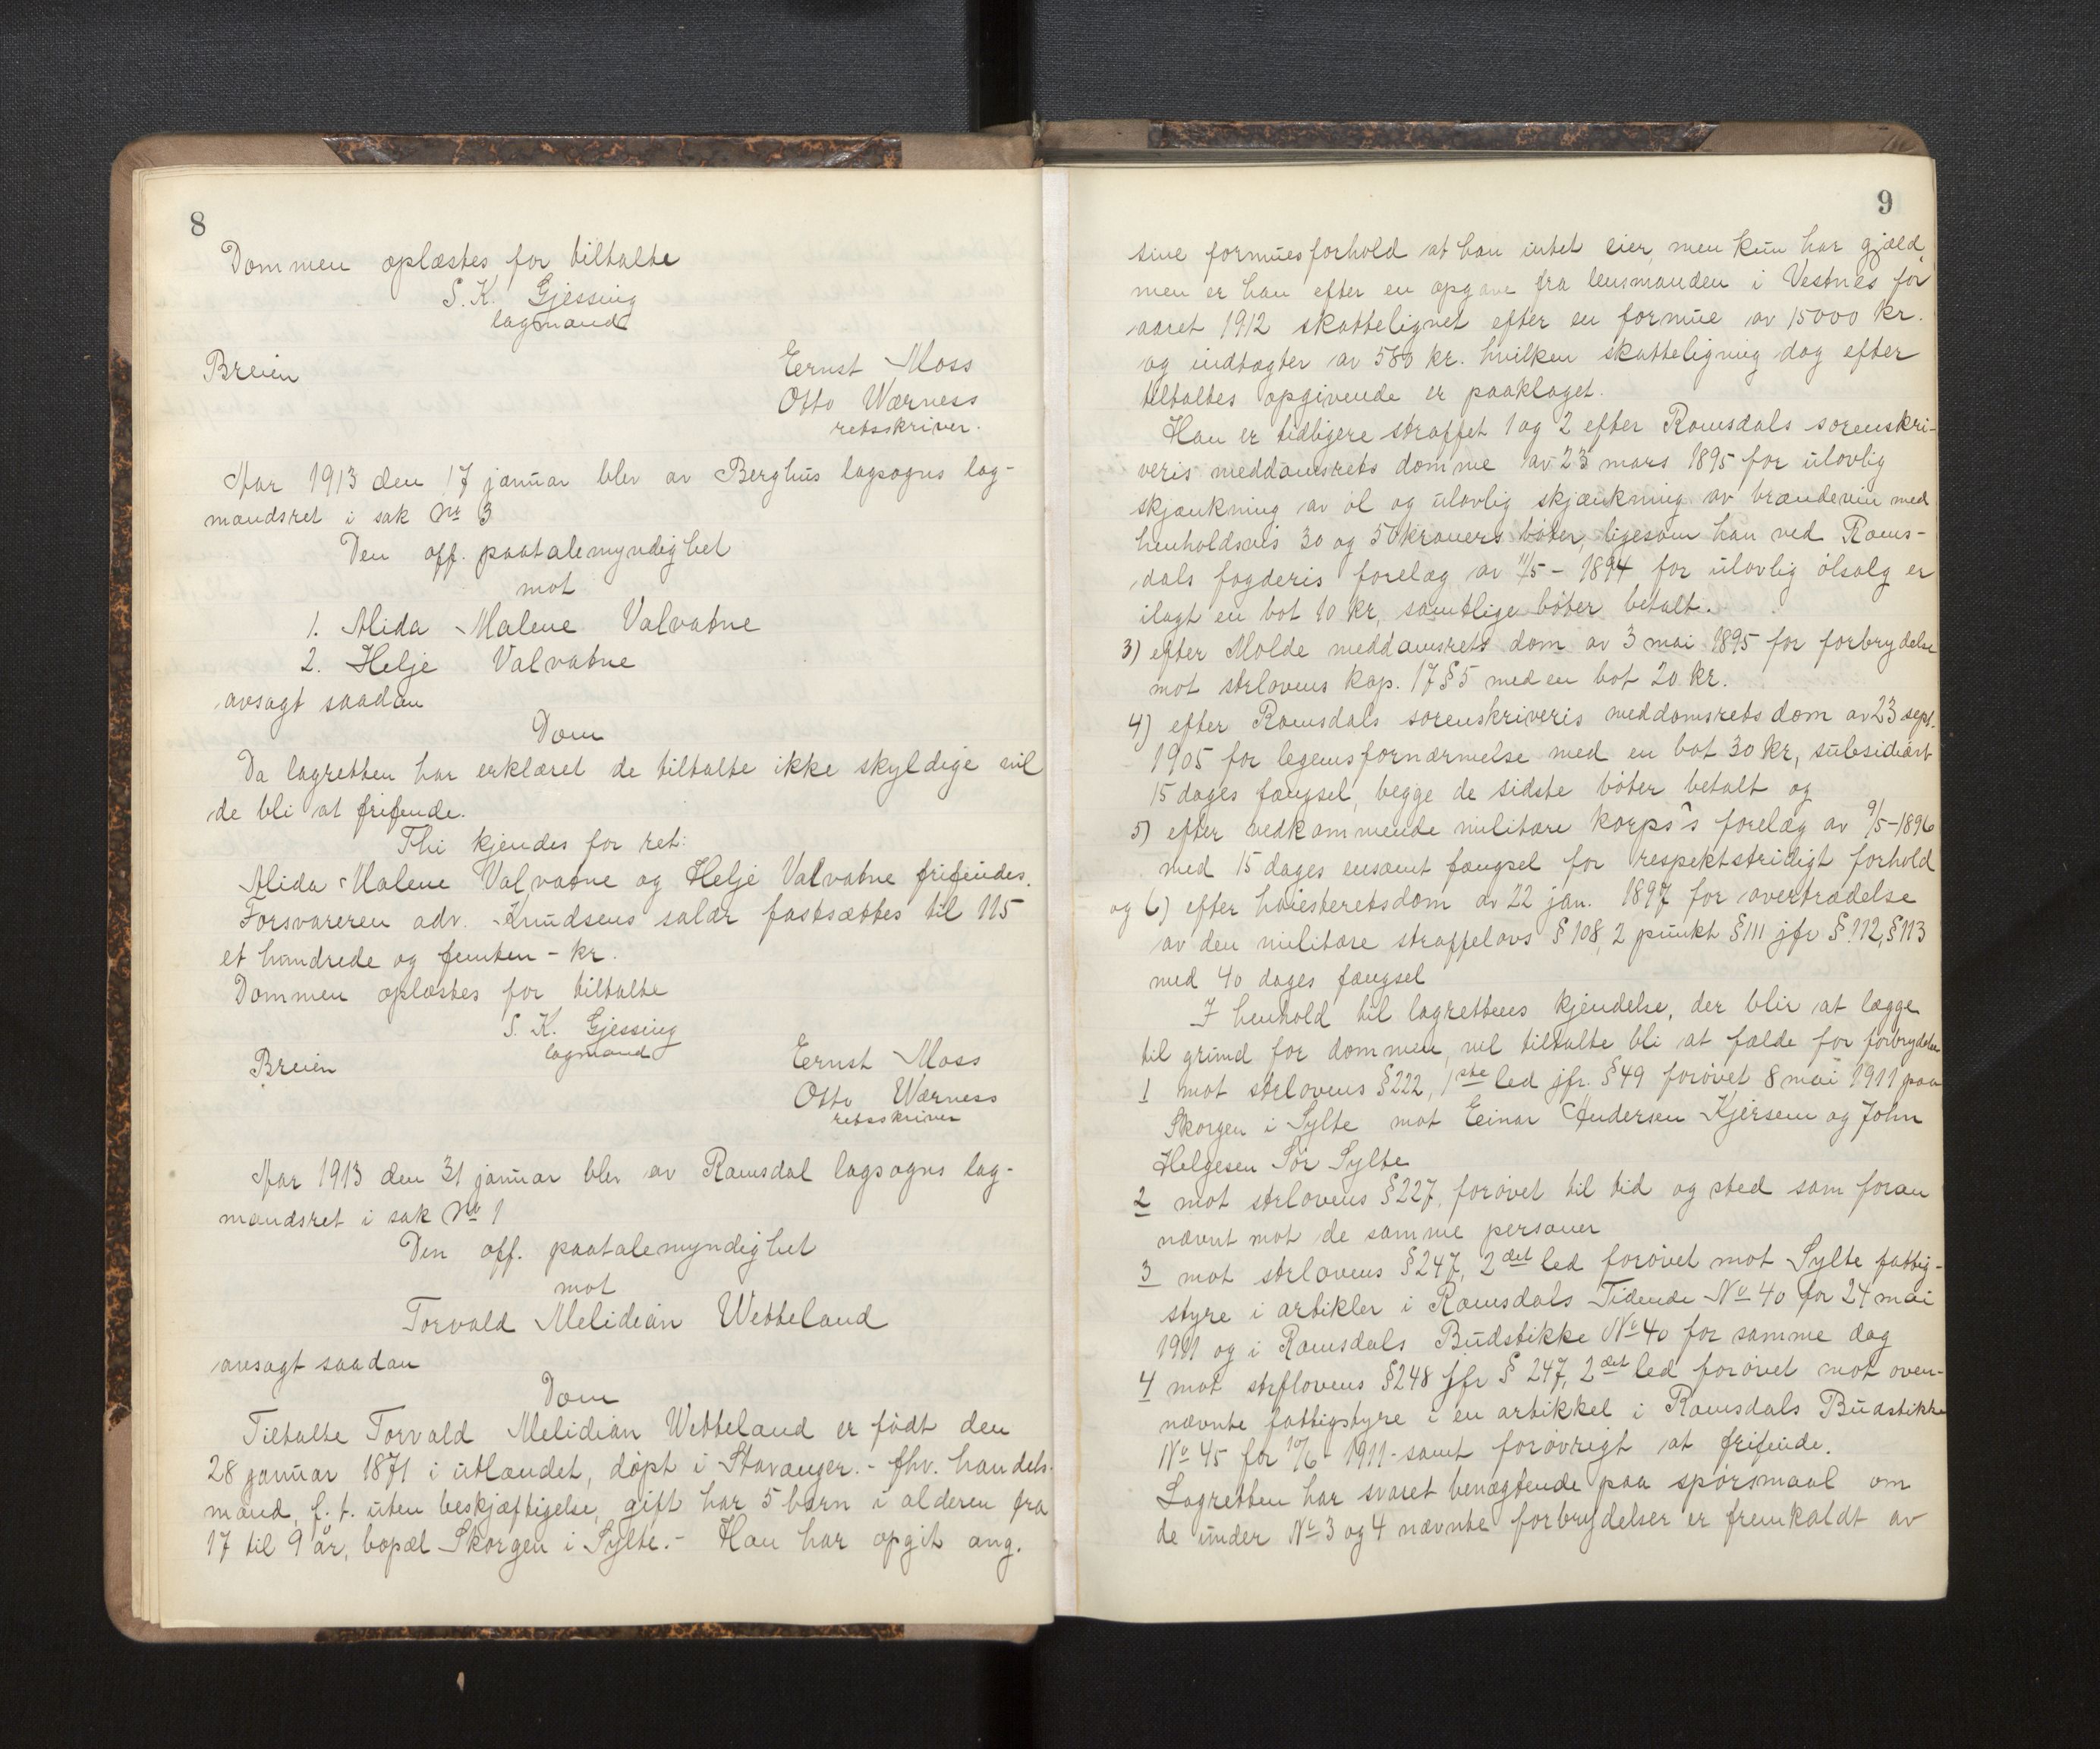 8
Dommen oplæstes for tiltalte
S. K. Gjessing
lagmand
Breien
Ernst Moss
Otto Wærness
retsskriver.
Aar 1913 den 17 januar blev av Berghus lagsogns lag-
mandsret i sak Nr 3
Den off. paatalemyndighet
mot
1. Alida Malene Valvatne
2. Helje Valvatne
avsagt saadan
Dom
Da lagretten har erklæret de tiltalte ikke skyldige vil
de bli at frifinde.
Thi kjendes for ret:
Alida Malene Valvatne og Helje Valvatne frifindes.
Forsvareren adv. Knudsens salær fastsættes til 115
et hundrede og femten - kr.
Dommen oplæstes for tiltalte
S. K. Gjessing
lagmand
Breien
Ernst Moss
Otto Wærness
retsskriver
Aar 1913 den 31 januar blev av Romsdal lagsogns lag-
mandsret i sak No 1
Den off. paatalemyndighet
mot
Torvald Melidian Wetteland
avsagt saadan
Dom
Tiltalte Torvald Melidian Wetteland er født den
28 januar 1871 i utlandet, døpt i Stavanger. - fhv. handels-
mand, f. t. uten beskjæftigelse, gift har 5 barn i alderen fra
17 til 9 år, bopæl Skorgen i Sylte. - Han har opgit ang.
9
sine formuesforhold at han intet eier, men kun har gjæld,
men er han efter en opgave fra lensmanden i Vestnes for
aaret 1912 skattelignet efter en formue av 15000 kr.
og indtægter av 580 kr. hvilken skatteligning dog efter
tiltaltes opgivende er paaklaget.
Han er tidligere straffet 1 og 2 efter Romsdals sorenskri-
veris meddomsrets domme av 23 mars 1895 for ulovlig
skjænkning av øl og ulovlig skjænkning av brændevin med
henholdsvis 30 og 50 kroners bøter, ligesom han ved Roms-
dals fogderis forelæg av 11/5 - 1894 for ulovlig ølsalg er
ilagt en bot 10 kr, samtlige bøter betalt.
3) efter Molde meddomsrets dom av 3 mai 1895 for forbrydelse
mot strlovens kap. 17 § 5 med en bot 20 kr.
4) efter Romsdals sorenskriveris meddomsrets dom av 23 sept.
1905 for legemsfornærmelse med en bot 30 kr, subsidiært
15 dages fængsel, begge de sidste bøter betalt og
5) efter vedkommende militære korps's forelæg av 9/5-1896
med 15 dages ensomt fængsel for respektstridigt forhold
og 6) efter høiesteretsdom av 22 jan. 1897 for overtrædelse
av den militære straffelovs § 108, 2 punkt § 111 jfr § 112, § 113
med 40 dages fængsel
I henhold til lagrettens kjendelse, der blir at lægge
til grund for dommen, vil tiltalte bli at fælde for forbrydelse
1 mot strlovens § 222, 1ste led jfr. § 49 forøvet 8 mai 1911 paa
Skorgen i Sylte mot Einar Andersen Kjersem og John
Helgesen Sør Sylte
2 mot strlovens § 227, forøvet til tid og sted som foran
nævnt mot de samme personer
3 mot strlovens § 247, 2det led forøvet mot Sylte fattig-
styre i artikler i Romsdals Tidende No 40 for 24 mai
1911 og i Romsdals Budstikke No 40 for samme dag
4 mot strflovens § 248 jfr § 247, 2det led forøvet mot oven-
nævnte fattigstyre i en artikkel i Romsdals Budstikke
No 45 for 10/6 - 1911 - samt forøvrigt at frifinde.
Lagretten har svaret benægtende paa spørsmaal om
de under No 3 og 4 nævnte forbrydelser er fremkaldt av